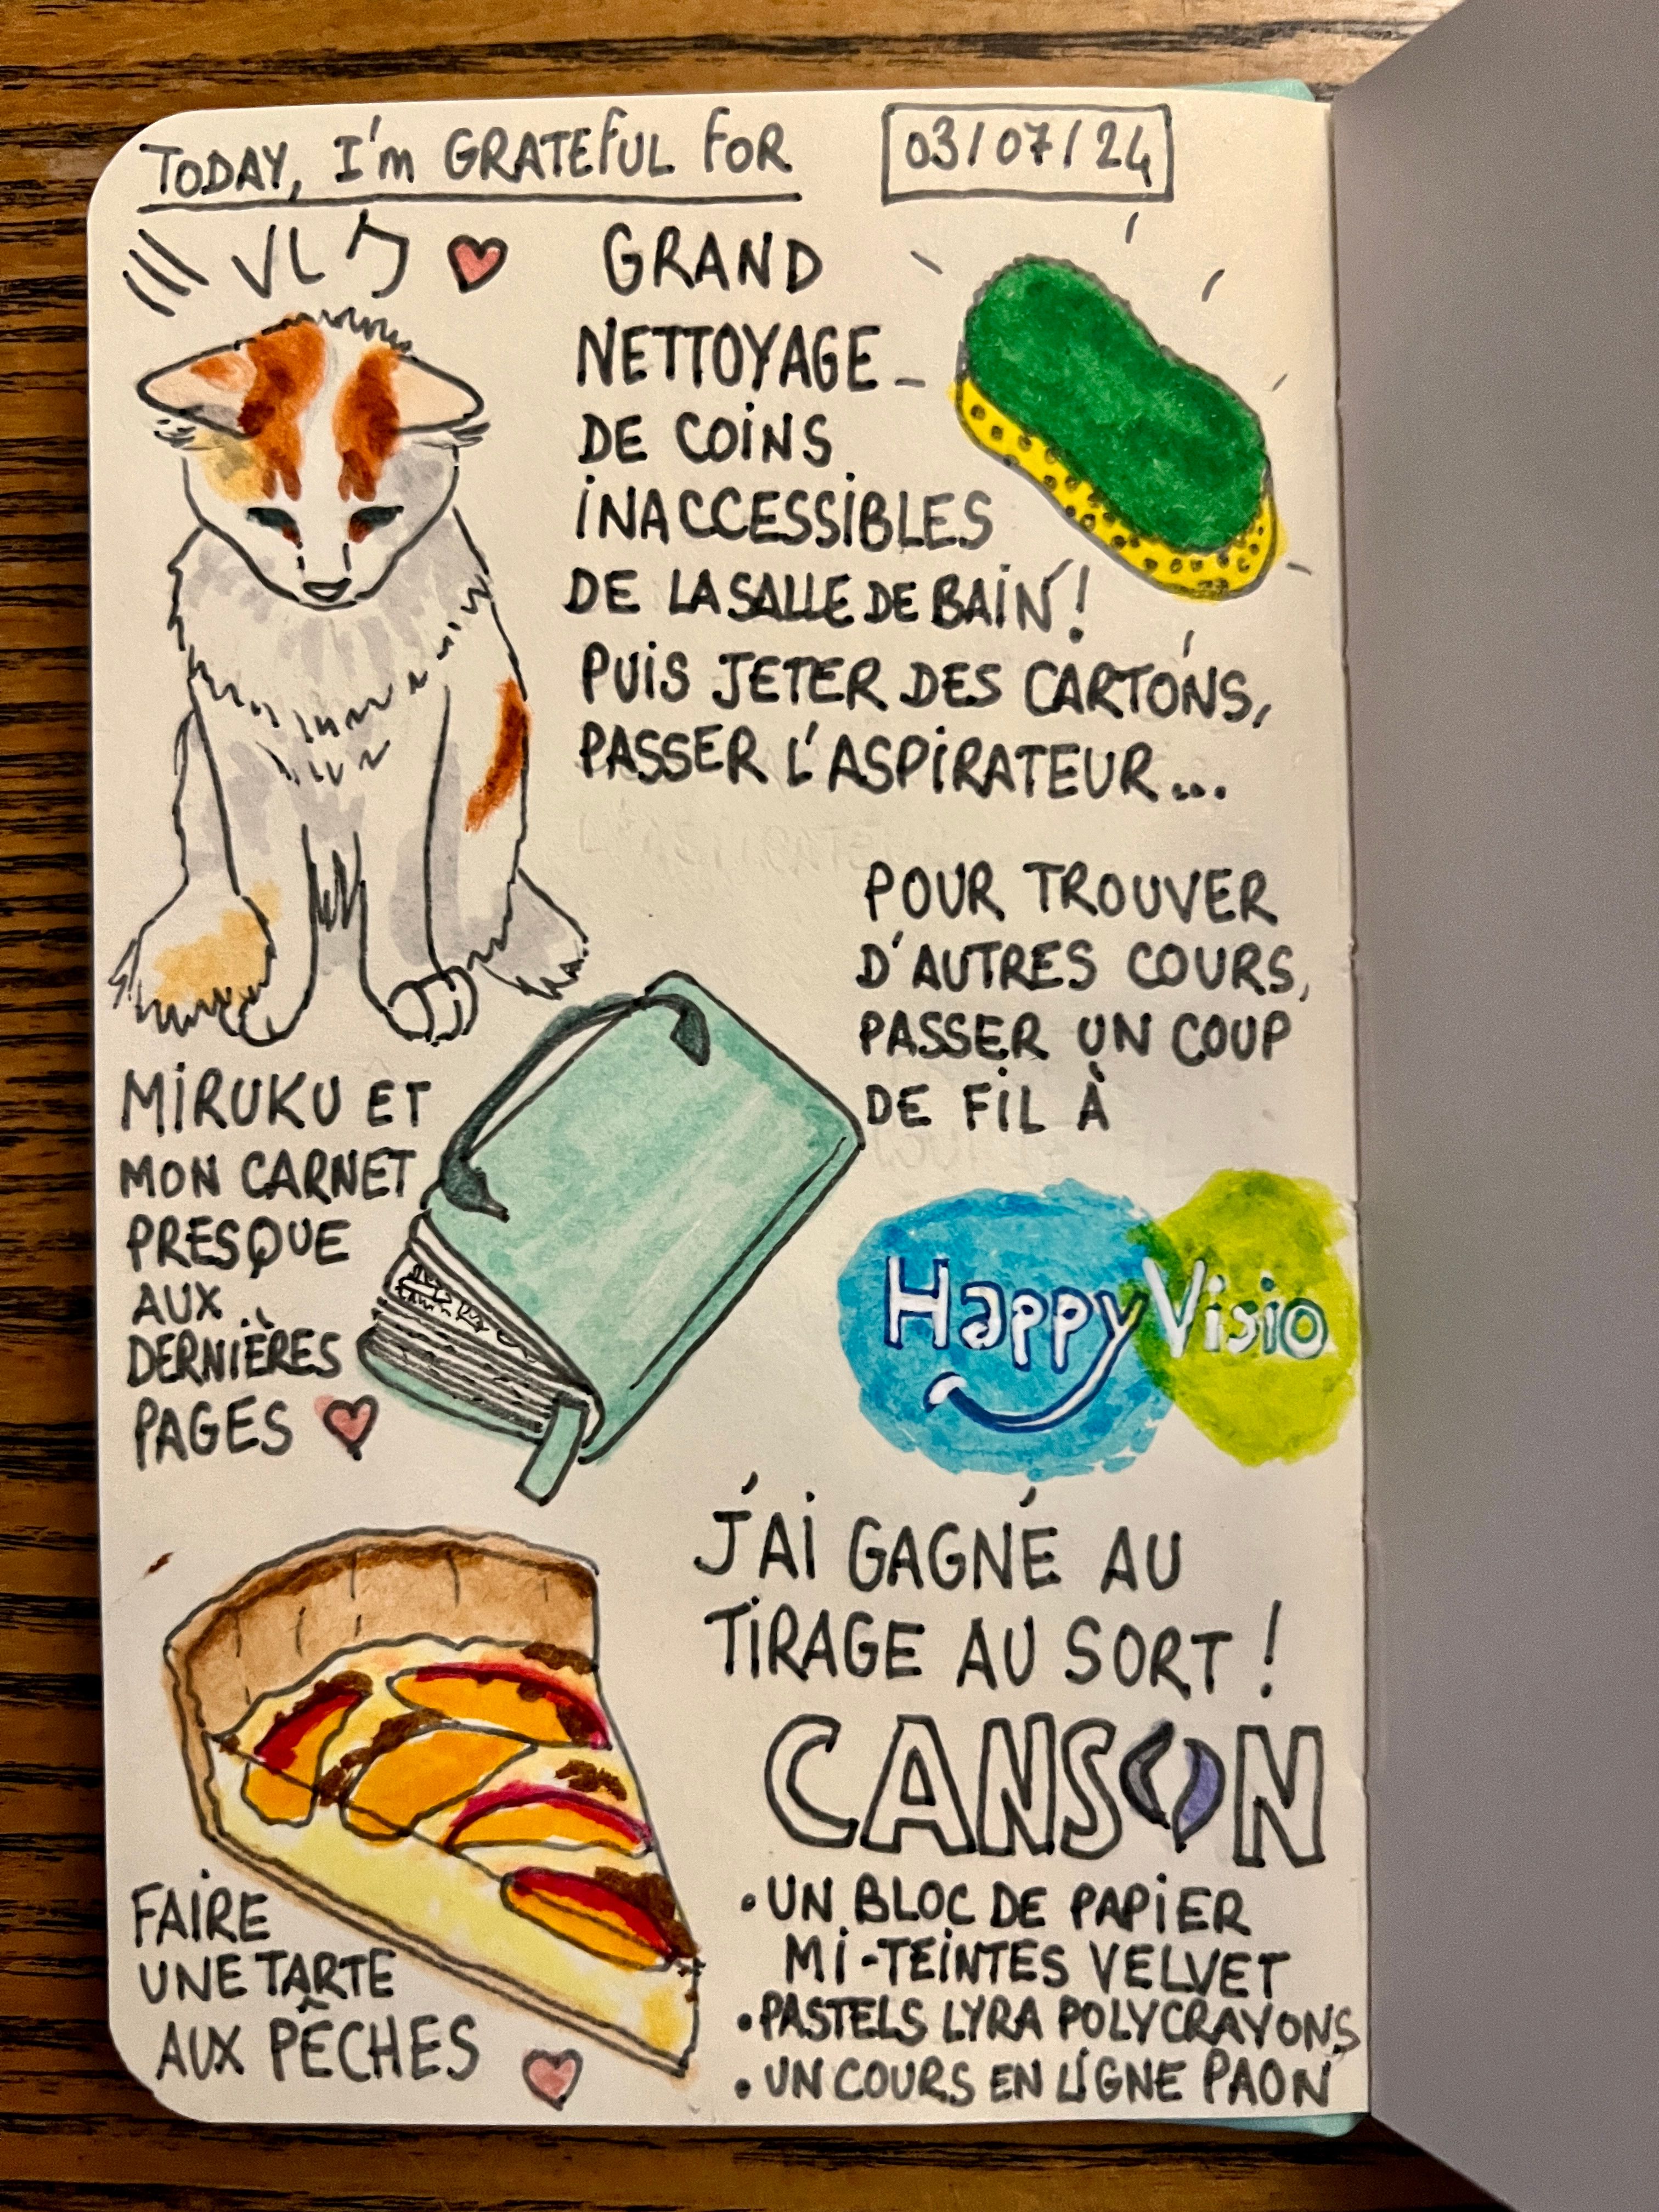 TODAY, I'm GRATEFUL FOR
03/07/24
ミルク
GRAND
NETTOYAGE
DE COINS
INACCESSIBLES
DE LA SALLE DE BAIN!
PUIS JETER DES CARTONS,
PASSER L'ASPIRATEUR...
MIRUKU ET
MON CARNET
PRESQUE
AUX
DERNIÈRES
PAGES
POUR TROUVER
D'AUTRES COURS,
PASSER UN COUP
DE FIL À
HappyVisio
FAIRE
UNE TARTE
AUX PÊCHES
J'AI GAGNÉ AU
TIRAGE AU SORT!
CANSON
• UN BLOC DE PAPIER
MI-TEINTES VELVET
• PASTELS LYRA POLYCRAYONS
• UN COURS EN LIGNE PAON